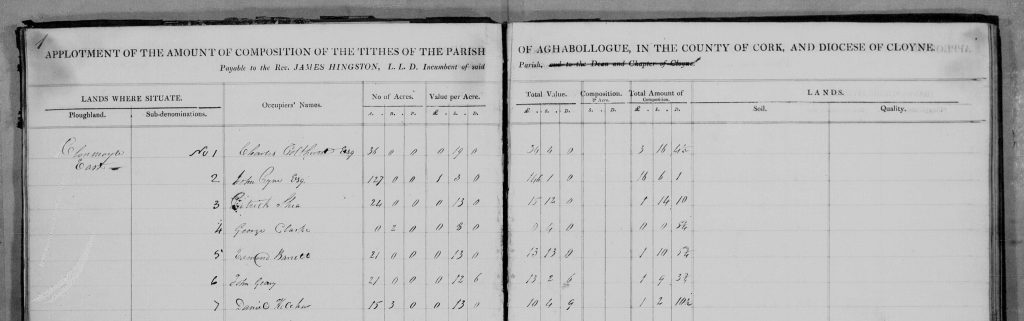 1
APPLOTMENT OF THE AMOUNT OF COMPOSITION OF THE TITHES OF THE PARISH OF AGHABOLLOGUE, IN THE COUNTY OF CORK, AND DIOCESE OF CLOYNE.
Payable to the Rev. JAMES HINGSTON, L. L. D. Incumbent of said Parish, and to the Dean and Chapter of Cloyne.
LANDS WHERE SITUATE. Occupiers' Names. No of Acres. Value per Acre. Total Value. Composition. ₱ Acre. Total Amount of Composition. LANDS.
Ploughland. Sub-denominations. A. R. P. £ S. D. £ S. D. £ S. D. Soil. Quality.
Clonmoyle East No 1 Charles Esq 36 0 0 0 19 0 34 4 0
2 John Pyne Esq. 127 0 0 1 3 0 146 1 0 18 6 1
3 Shea 24 0 0 0 13 0 15 12 0 1 14 10
4 George Clarke 0 2 0 0 8 0 0 4 0 0 0
5 Barrett 21 0 0 0 13 0 13 13 0 1 10
6 John Geary 21 0 0 0 12 6 13 2 6 1 9
7 Daniel 15 3 0 0 13 0 10 4 9 1 2